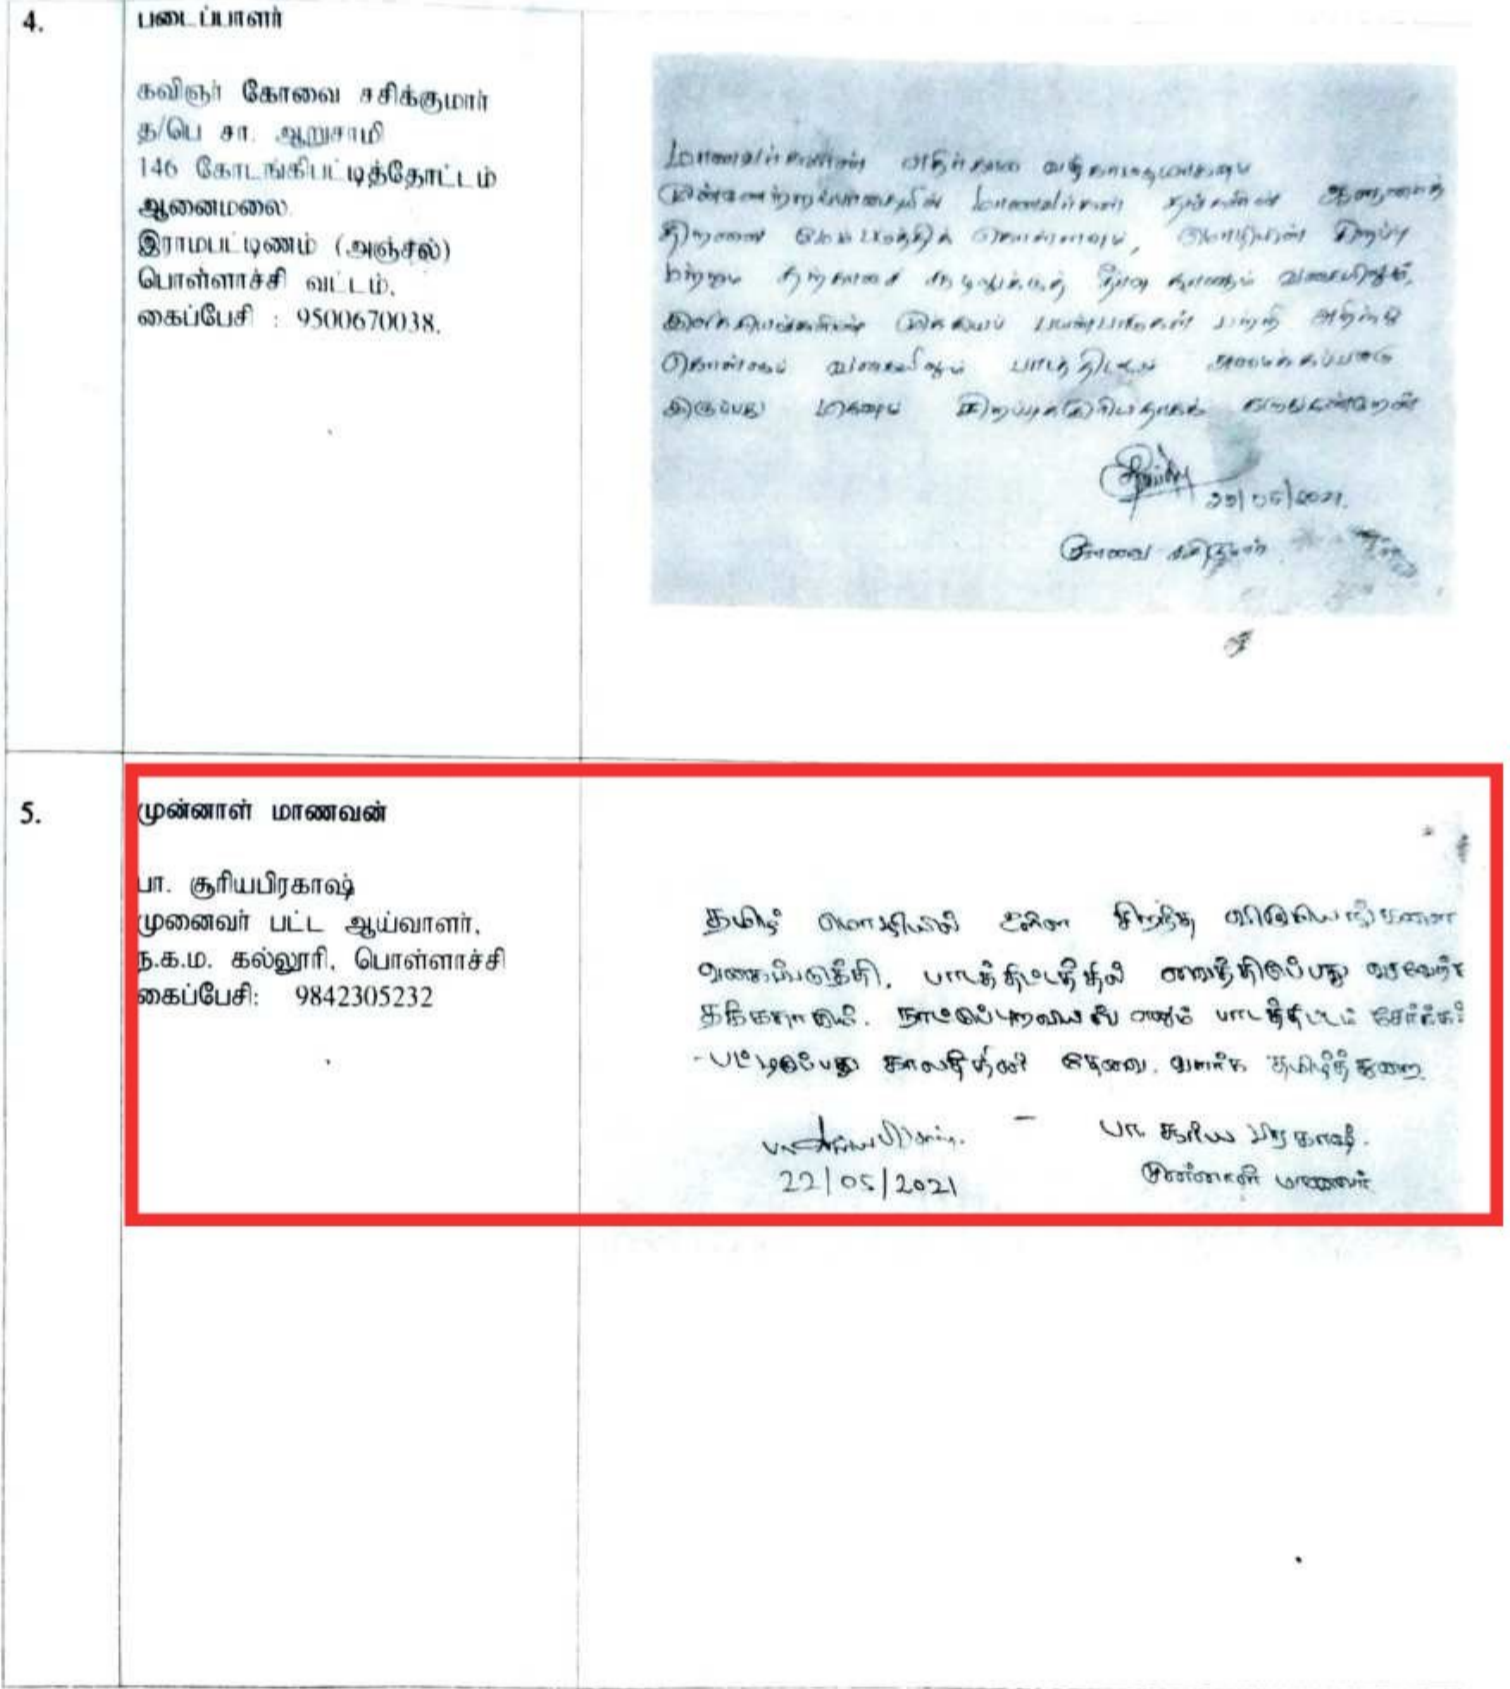 4.
படைப்பாளர்
கவிஞர் கோவை சசிக்குமார்
த/பெ சா. ஆறுசாமி
146 கோடங்கிபட்டித்தோட்டம்
ஆனைமலை
இராமபட்டிணம் (அஞ்சல்)
பொள்ளாச்சி வட்டம்.
கைப்பேசி : 9500670038.
மாணவர்களின் எதிர்கால
மாணவர்கள் தங்களின் ஆளுமைத்
திறனை மேம்படுத்திக் கொள்ளவும், மொழியின் சிறப்பு
மற்றும் தற்காலச் சூழலுக்குத் தீர்வு காணும் வகையிலும்,
இலக்கியங்களின் பற்றி அறிந்து
கொள்ளும் வகையிலும் பாடத்திட்டம் அமைக்கப்பட்டு
இருப்பது மிகவும் சிறப்புக்குரியதாகக் கருதுகின்றேன்
/05/2021.
கோவை சசிகுமார்
5.
முன்னாள் மாணவன்
பா. சூரியபிரகாஷ்
முனைவர் பட்ட ஆய்வாளர்.
ந.க.ம. கல்லூரி, பொள்ளாச்சி
கைப்பேசி: 9842305232
தமிழ் மொழியில் உள்ள சிறந்த
வகைப்படுத்தி, பாடத்திட்டத்தில் வைத்திருப்பது வரவேற்க
தக்கதாகும். நாட்டுப்புறவியல் எனும் பாடத்திட்டம் சேர்க்கப்
-பட்டிருப்பது காலத்தின் தேவை. வளர்க தமிழ்த்துறை.
பா. சூரிய பிரகாஷ்.
22/05/2021
முன்னாள் மாணவர்